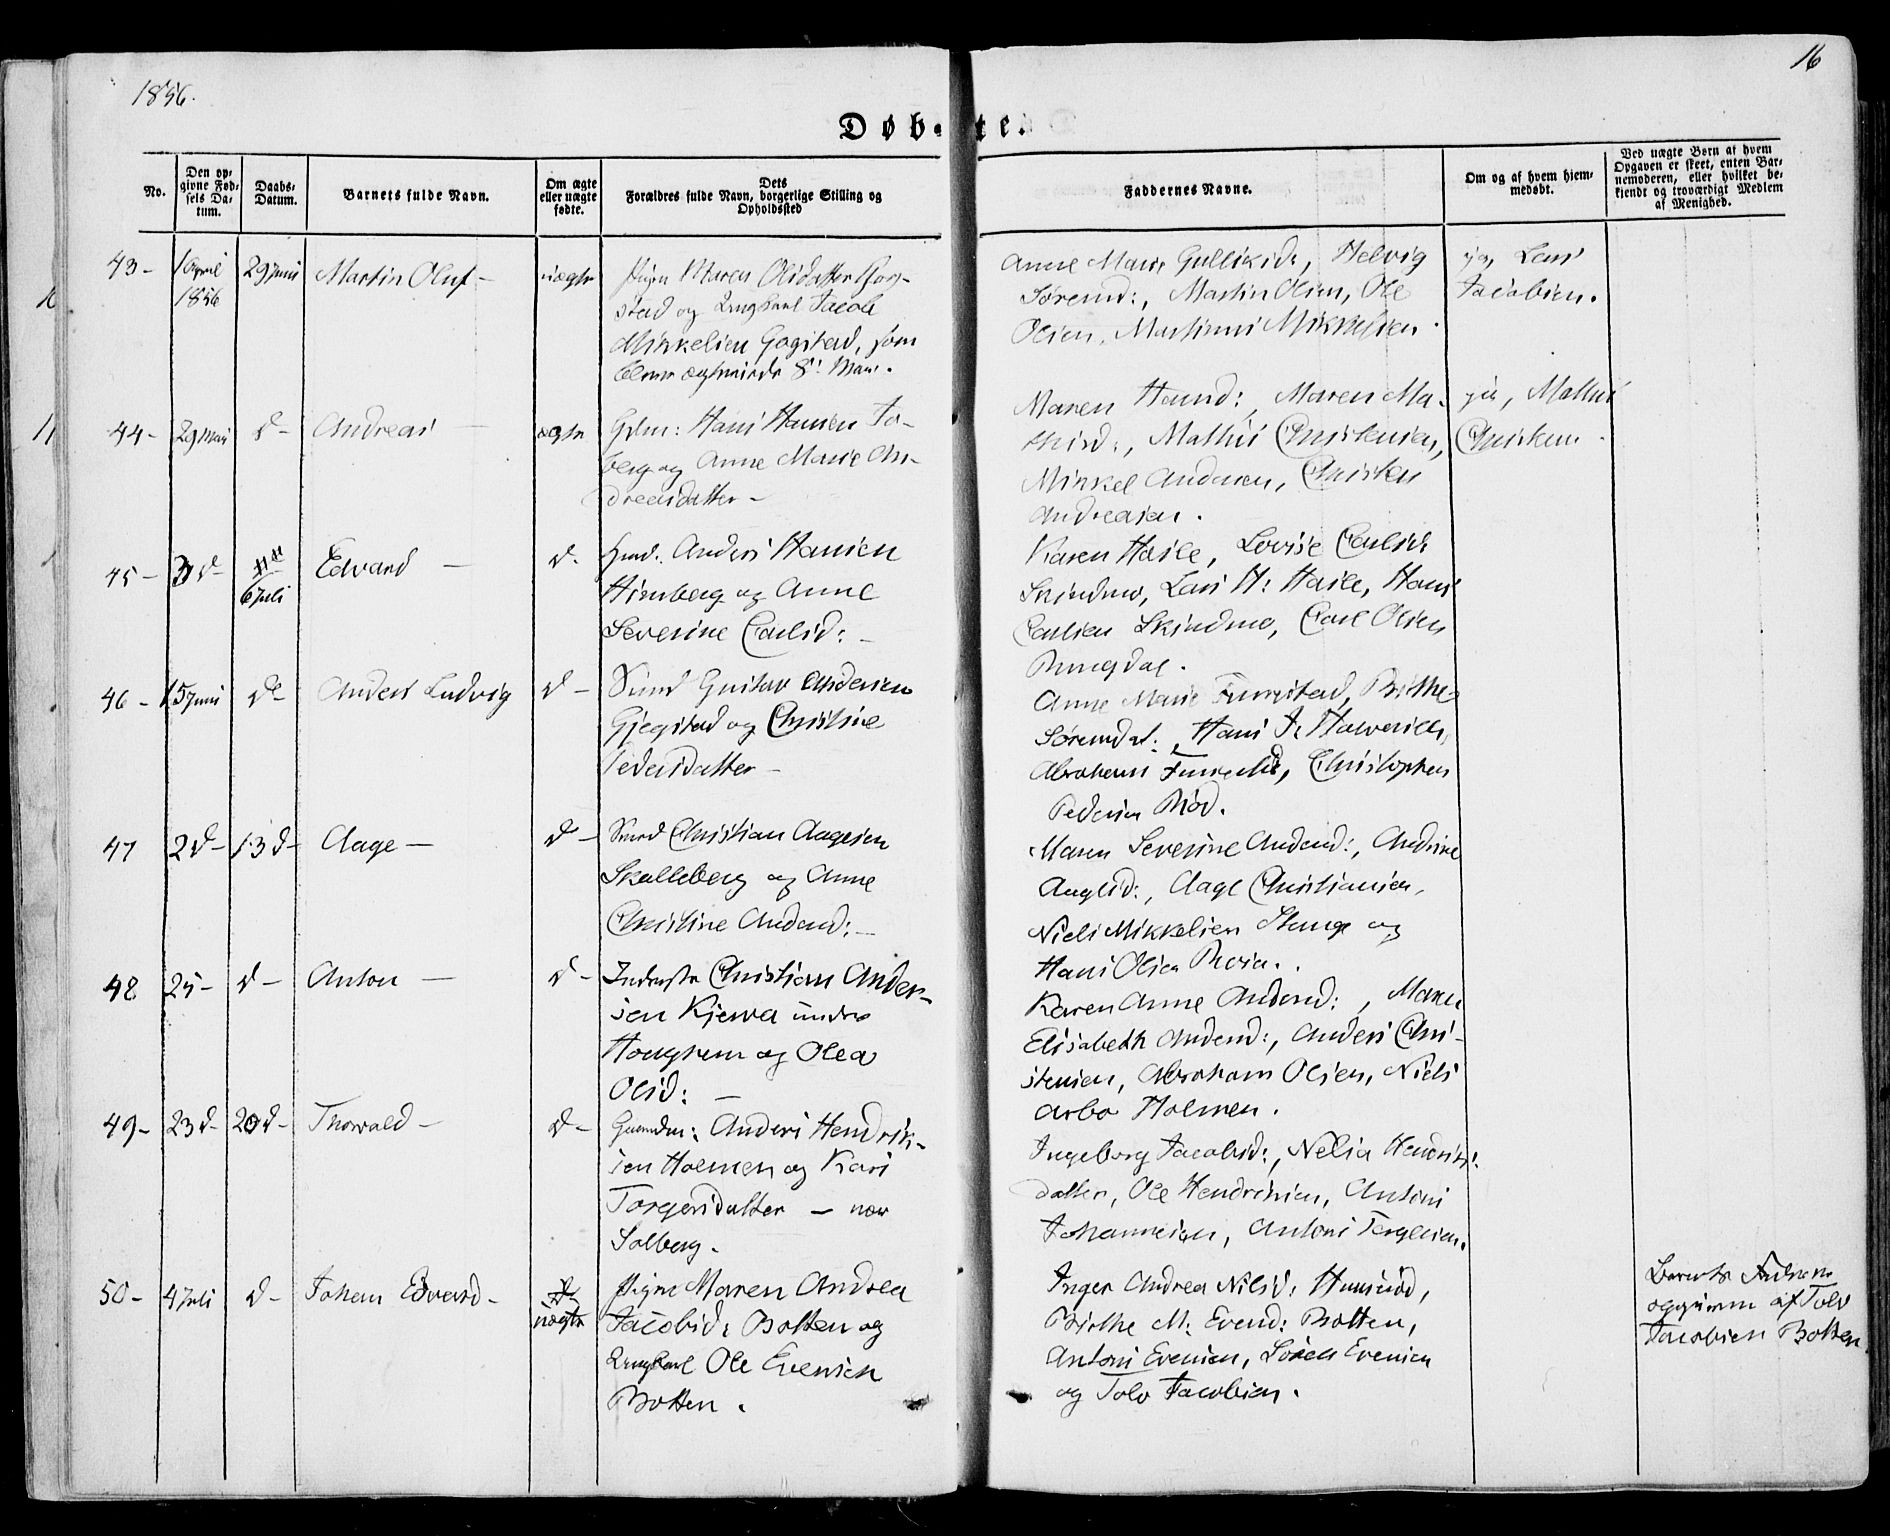 1856.
16
Døb- te.
No.
Den op-
givne Fød-
sels Da-
tum.
Daabs-
Datum.
Barnets fulde Navn.
Om ægte
eller uægte
fødte.
Dets
Forældres fulde Navn, borgerlige Stilling og
Opholdssted
Faddernes Navne.
Om og af hvem hjem-
medøbt.
Ved uægte Børn af hvem
Opgaven er skeet, enten Bar-
nemoderen, eller hvilket be-
kjendt og troværdigt Medlem
af Menighed.
43 -
1 April
1856
29 Juni
Martin Oluf -
uægte
Pigen Maren Olsdatter Gog-
stad og Ungkarl Jacob
Mikkelsen Gogstad, som
Anne Marie Gulliksd:, Helvig
Sørensd:, Martin Olsen, Ole
Olsen, Martinus Mikkelsen.
ja, Lars
Jacobsen.
44 -
29 Mai
d -
Andreas -
ægte
Gdm: Hans Hansen Fo-
berg og Anne Marie An-
dreasdatter -
Maren Hansd:, Maren Ma-
thisd:, Mathis Christensen,
Mikkel Andersen, Christen
Andreasen.
ja, Mathis
Christens.
45 -
3 d -
6 Juli
Edvard -
d -
Husmd. Anders Hansen
Himberg og Anne
Severine Carlsd: -
Karen Hasle, Lovise Carlsd:
Skindmo, Lars H: Hasle, Hans
Carlsen Skindmo, Carl Olsen
Ringdal.
46 -
15 Juni
do -
Anders Ludvig
d -
Smed Gustav Andersen
Gjegstad og Christine
Pedersdatter -
Anne Marie Furustad, Birthe
Sørensdat:, Hans J. Halvorsen,
Abraham Furustad, Christopher
Pedersen Rød.
47
2 d -
13 d -
Aage -
d -
Smed Christian Aagesen
Skalleberg og Anne
Christine Andersd: -
Maren Severine Andersd:, Andrine
Aagesd:, Aage Christiansen,
Niels Mikkelsen Stange og
Hans Olsen Roia.
48
25 -
d -
Anton -
d -
Inderste Christian Ander-
sen Kjerra under
Haughem og Olea
Olsd: -
Karen Anne Andersd:, Maren
Elisabeth Andersd:, Anders Chri-
stensen, Abraham Olsen, Niels
Arbo Holmen.
49 -
23 d -
20 d -
Thorvald -
d -
Anders Hendrik-
sen Holmen og Kari
Torgersdatter - nær
Solberg.
Ingeborg Jacobsd:, Nelia Hendriks-
datter, Ole Hendriksen, Anton
Johannesen, Anton Torgersen.
50 -
4 Juli
d -
Johan Edvard -
uægte
Pigen Maren Andrea
Jacobsd: Botten og
Ungkarl Ole Evensen
Botten.
Inger Andrea Nilsd:
Birthe M: Evensd: Botten,
Anton Evensen, Søren Evensen
og Tolv Jacobsen.
Barnets
opgiven af Tolv
Jacobsen Botten